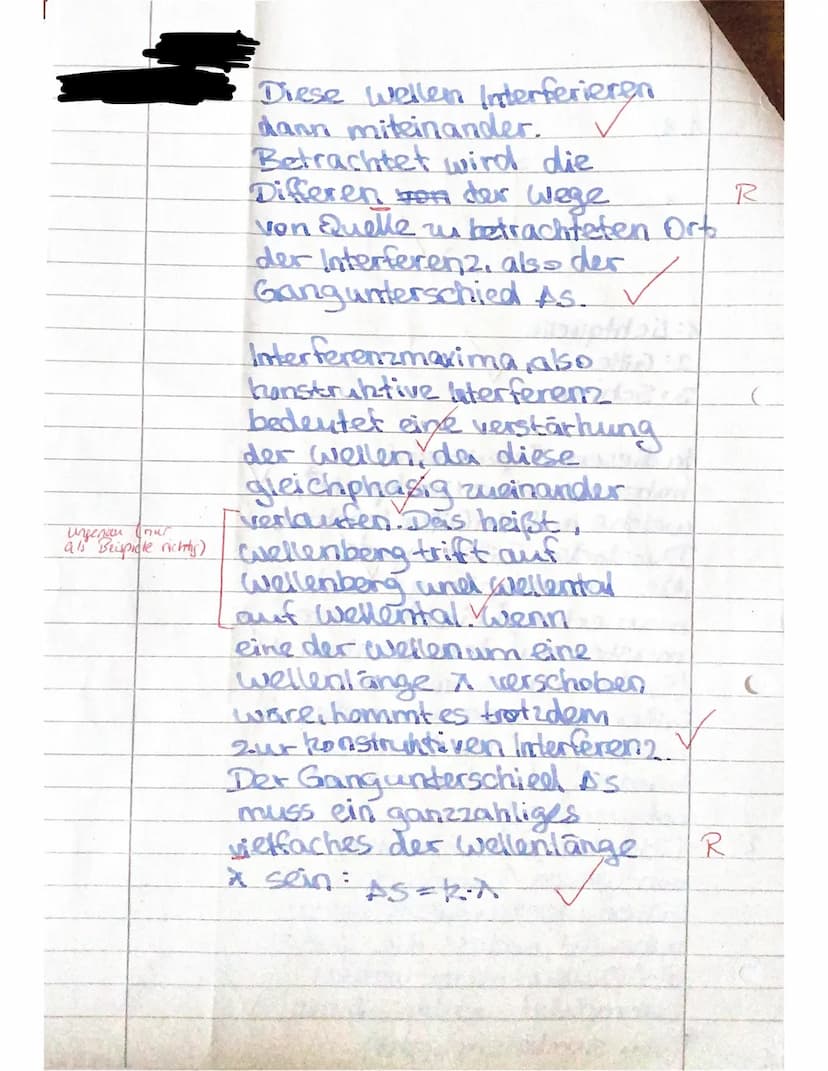 Diese Wellen Interferieren
dann miteinander.
Betrachtet wird die
Differen von der Wege R
von Quelle zu betrachteten Ort
der Interferenz, also der
Gangunterschied Δs.
Interferenzmaxima, also
konstruktive Interferenz
bedeutet eine verstärkung
der Wellen, da diese
gleichphasig zueinander
verlaufen. Das heißt,
ungenau (nur
als Beispiele richtig)
Wellenberg trift auf
Wellenberg und Wellental
auf Wellental. Wenn
eine der Wellen um eine
Wellenlänge λ verschoben
wäre, kommt es trotzdem
zur konstruktiven Interferenz.
Der Gangunterschied Δs
muss ein ganzzahliges
vielfaches der Wellenlänge R
λ sein: Δs = k·λ